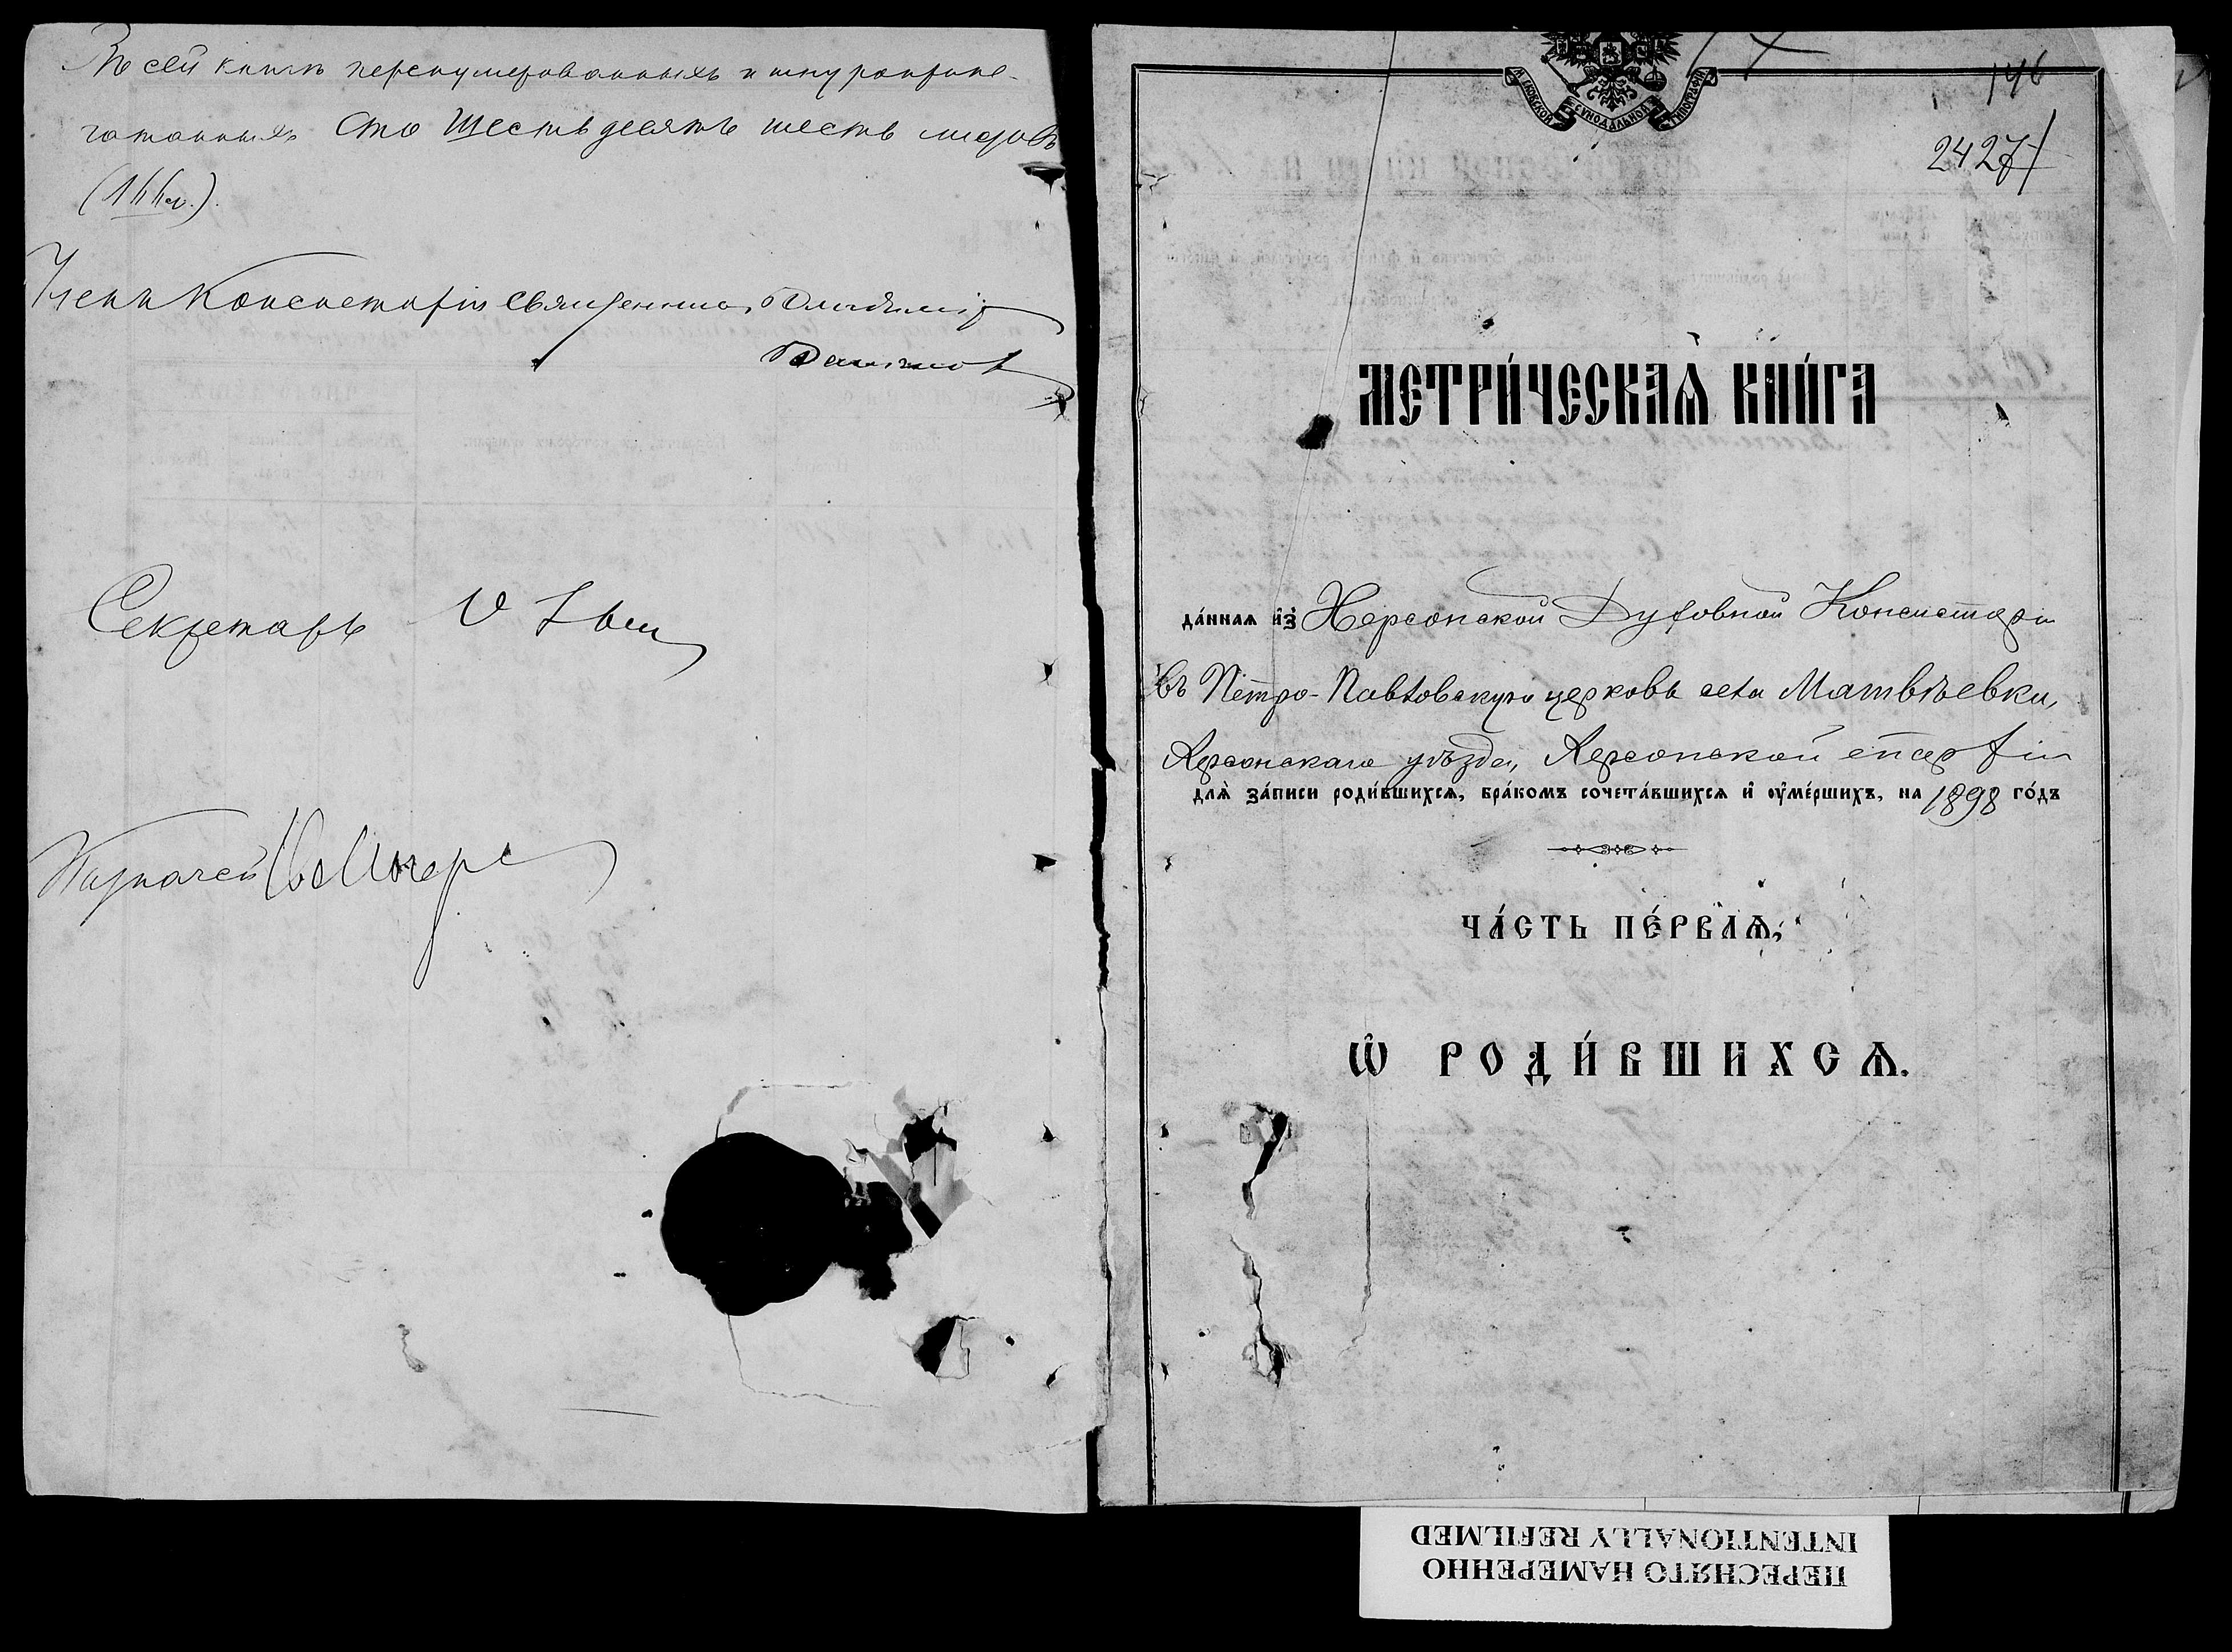 Въ сей книгѣ перенумерованныхъ и шнуроприпе-
чатанныхъ сто шестьдесятъ шесть листовъ
(166 л.).
Членъ Консисторіи Священникъ Владиміръ
Секретарь
Казначей
МОСКОВСКОЙ СѴНОДАЛЬНОЙ ТИПОГРАФІИ
146
2427
МЕТРИ́ЧЕСКАѦ КНИ́ГА
да́ннаѧ и҆з̾ Херсонской Духовной Консисторіи
въ Петро-Павловскую церковь села Матвѣевки,
Херсонскаго уѣзда, Херсонской епархіи
длѧ̀ за́писи роди́вшихсѧ, бра́комъ сочета́вшихсѧ и҆ ᲂу҆ме́ршихъ, на 1898 го́дъ
ЧА́СТЬ ПЕ́РВАѦ,
Ѡ҆ РОДИ́ВШИХСѦ.
ПЕРЕСНЯТО НАМЕРЕННО
INTENTIONALLY REFILMED